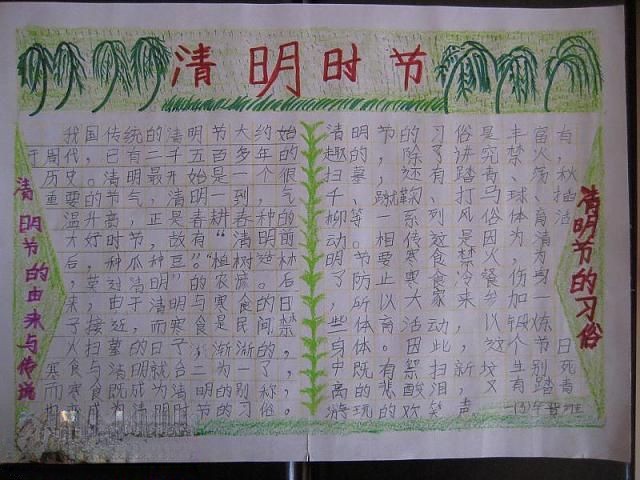 清明时节
清明节的由来与传说
我国传统的清明节大约始
于周代，已有二千五百多年的
历史。清明最开始是一个很
重要的节气，清明一到，气
温升高，正是春耕春种的
大好时节，故有“清明前
后，种瓜种豆”。“植树造林
，莫过清明”的农谚。后
来，由于清明与寒食的日
子接近，而寒食是民间禁
火扫墓的日子，渐渐的，
寒食与清明就合二为一了，
而寒食既成为清明的别称，
也变成为清明时节的习俗。
清明节的习俗是丰富有
趣的，除了讲究禁火，
扫墓，还有踏青、荡秋
千、蹴鞠、打马球、插
柳等一系列风俗体育活
动。相传这是因为清
明节要寒食禁火，为
了防止寒食冷餐伤身
，所以大家来参加一
些体育活动，以锻炼
身体。因此，这个节日
中既有祭扫新坟生别死
离的悲酸泪，又有踏青
游玩的欢笑声
清明节的习俗